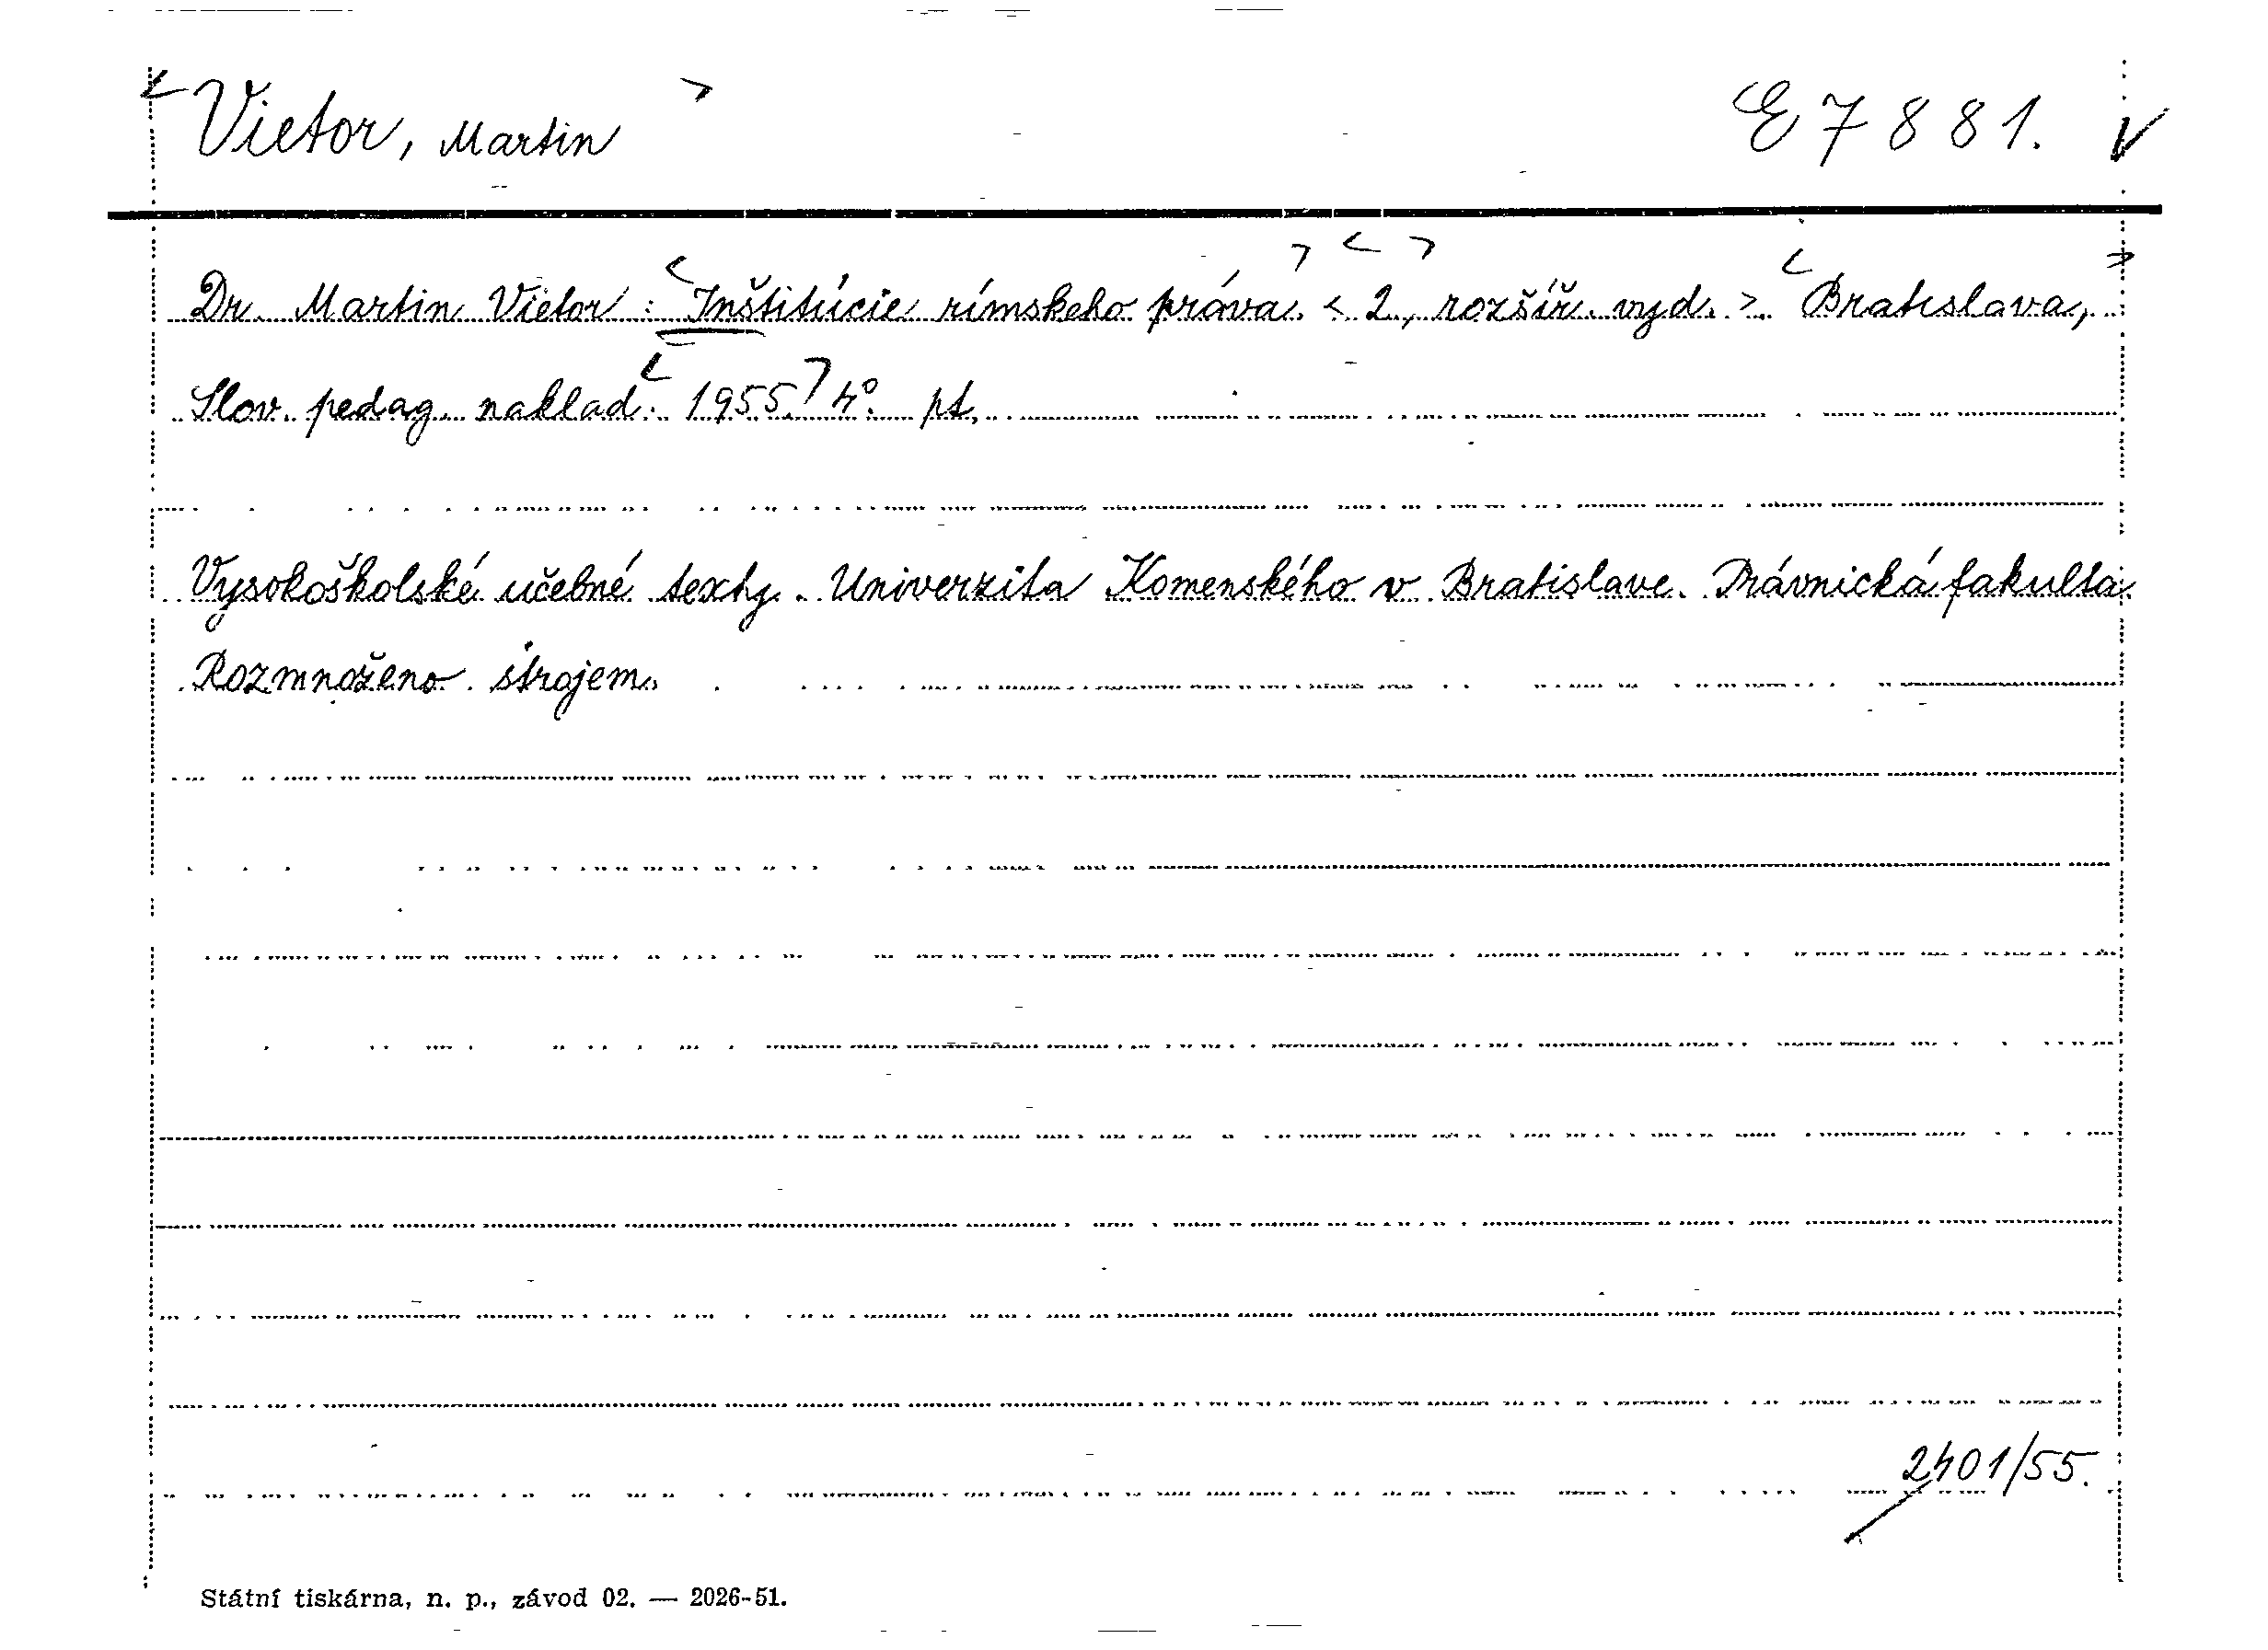 Vietor, Martin E 7881.
Dr. Martin Vietor: Inštitúcie rímskeho práva. < 2., rozšíř. vyd. > Bratislava,
Slov. pedag. naklad. 1955. 4°. pt.
Vysokoškolské učebné texty. Univerzita Komenského v Bratislave. Právnická fakulta.
Rozmnoženo strojem.
2401/55.
Státní tiskárna, n. p., závod 02. — 2026-51.